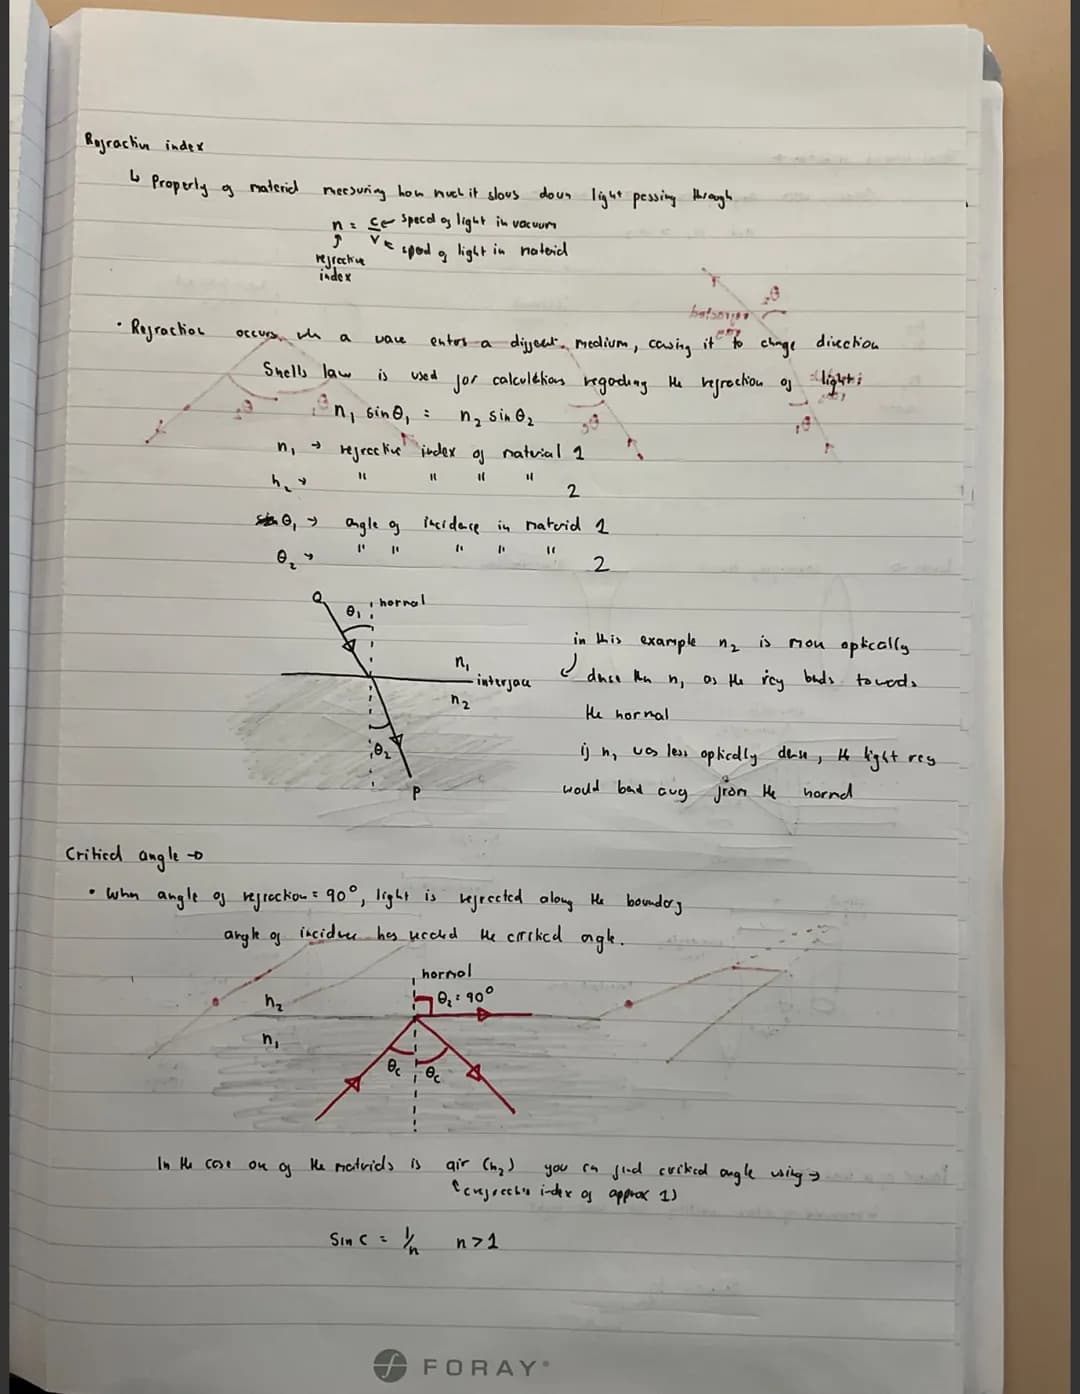 Refractive index
↳ Property of material measuring how much it slows down light passing through
n = c/v ← speed of light in vacuum
↑ ← speed of light in material
refractive
index
• Refraction occurs when a wave enters a different medium, causing it to change direction
Snells law is used for calculations regarding the refraction of light:
n₁ sinθ₁ = n₂ sinθ₂
n₁ → refractive index of material 1
n₂ → " " " " 2
θ₁ → angle of incidence in material 1
θ₂ → " " " " " 2
Q θ₁ normal
n₁
interface
n₂
θ₂
P
in this example n₂ is more optically
dense than n₁ as the ray bends towards
the normal
if n₂ was less optically dense, the light ray
would bend away from the normal
Critical angle →
• When angle of refraction = 90°, light is refracted along the boundary
angle of incidence has reached the critical angle.
normal
n₂ θ₂ = 90°
n₁
θc θc
In the case one of the materials is air (n₂) you can find critical angle using →
(refractive index of approx 1)
Sin C = 1/n n > 1
FORAY